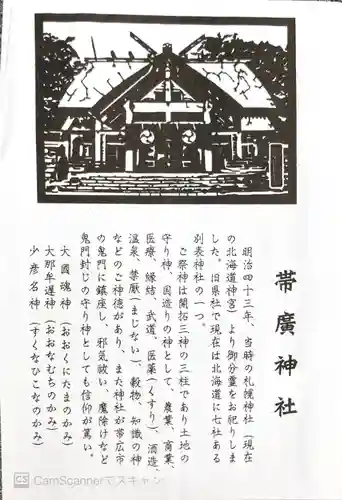 帯廣神社
明治四十三年、当時の札幌神社（現在
の北海道神宮）より御分霊をお祀りしま
した。旧県社で現在は北海道に七社ある
別表神社の一つ。
ご祭神は開拓三神の三柱であり土地の
守り神、国造りの神として、農業、商業、
医療、縁結 武道、医薬（くすり）、酒造、
温泉、禁厭（まじない）、穀物 知識の神
などのご神徳があり、また神社が帯広市
の鬼門に鎮座し、邪気祓い、魔除けなど
鬼門封じの守り神としても信仰が篤い。
大國魂神（おおくにたまのかみ）
大那牟遅神（おおなむちのかみ）
少彦名神（すくなひこなのかみ）
CS CamScannerでスキャン